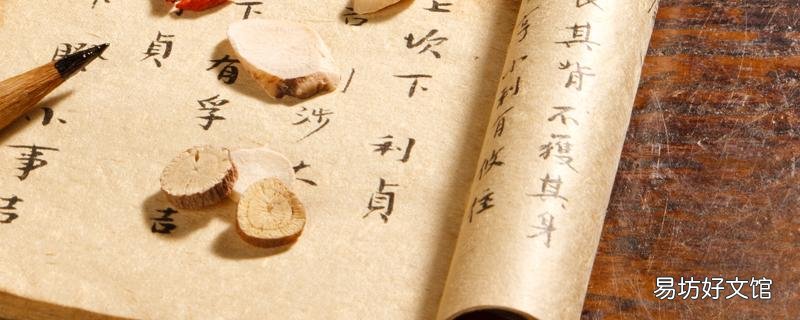 其背不獲其身
小利有攸往
上坎下利貞
吉涉大
下有孚吉
貞
小事吉
易坊好文馆